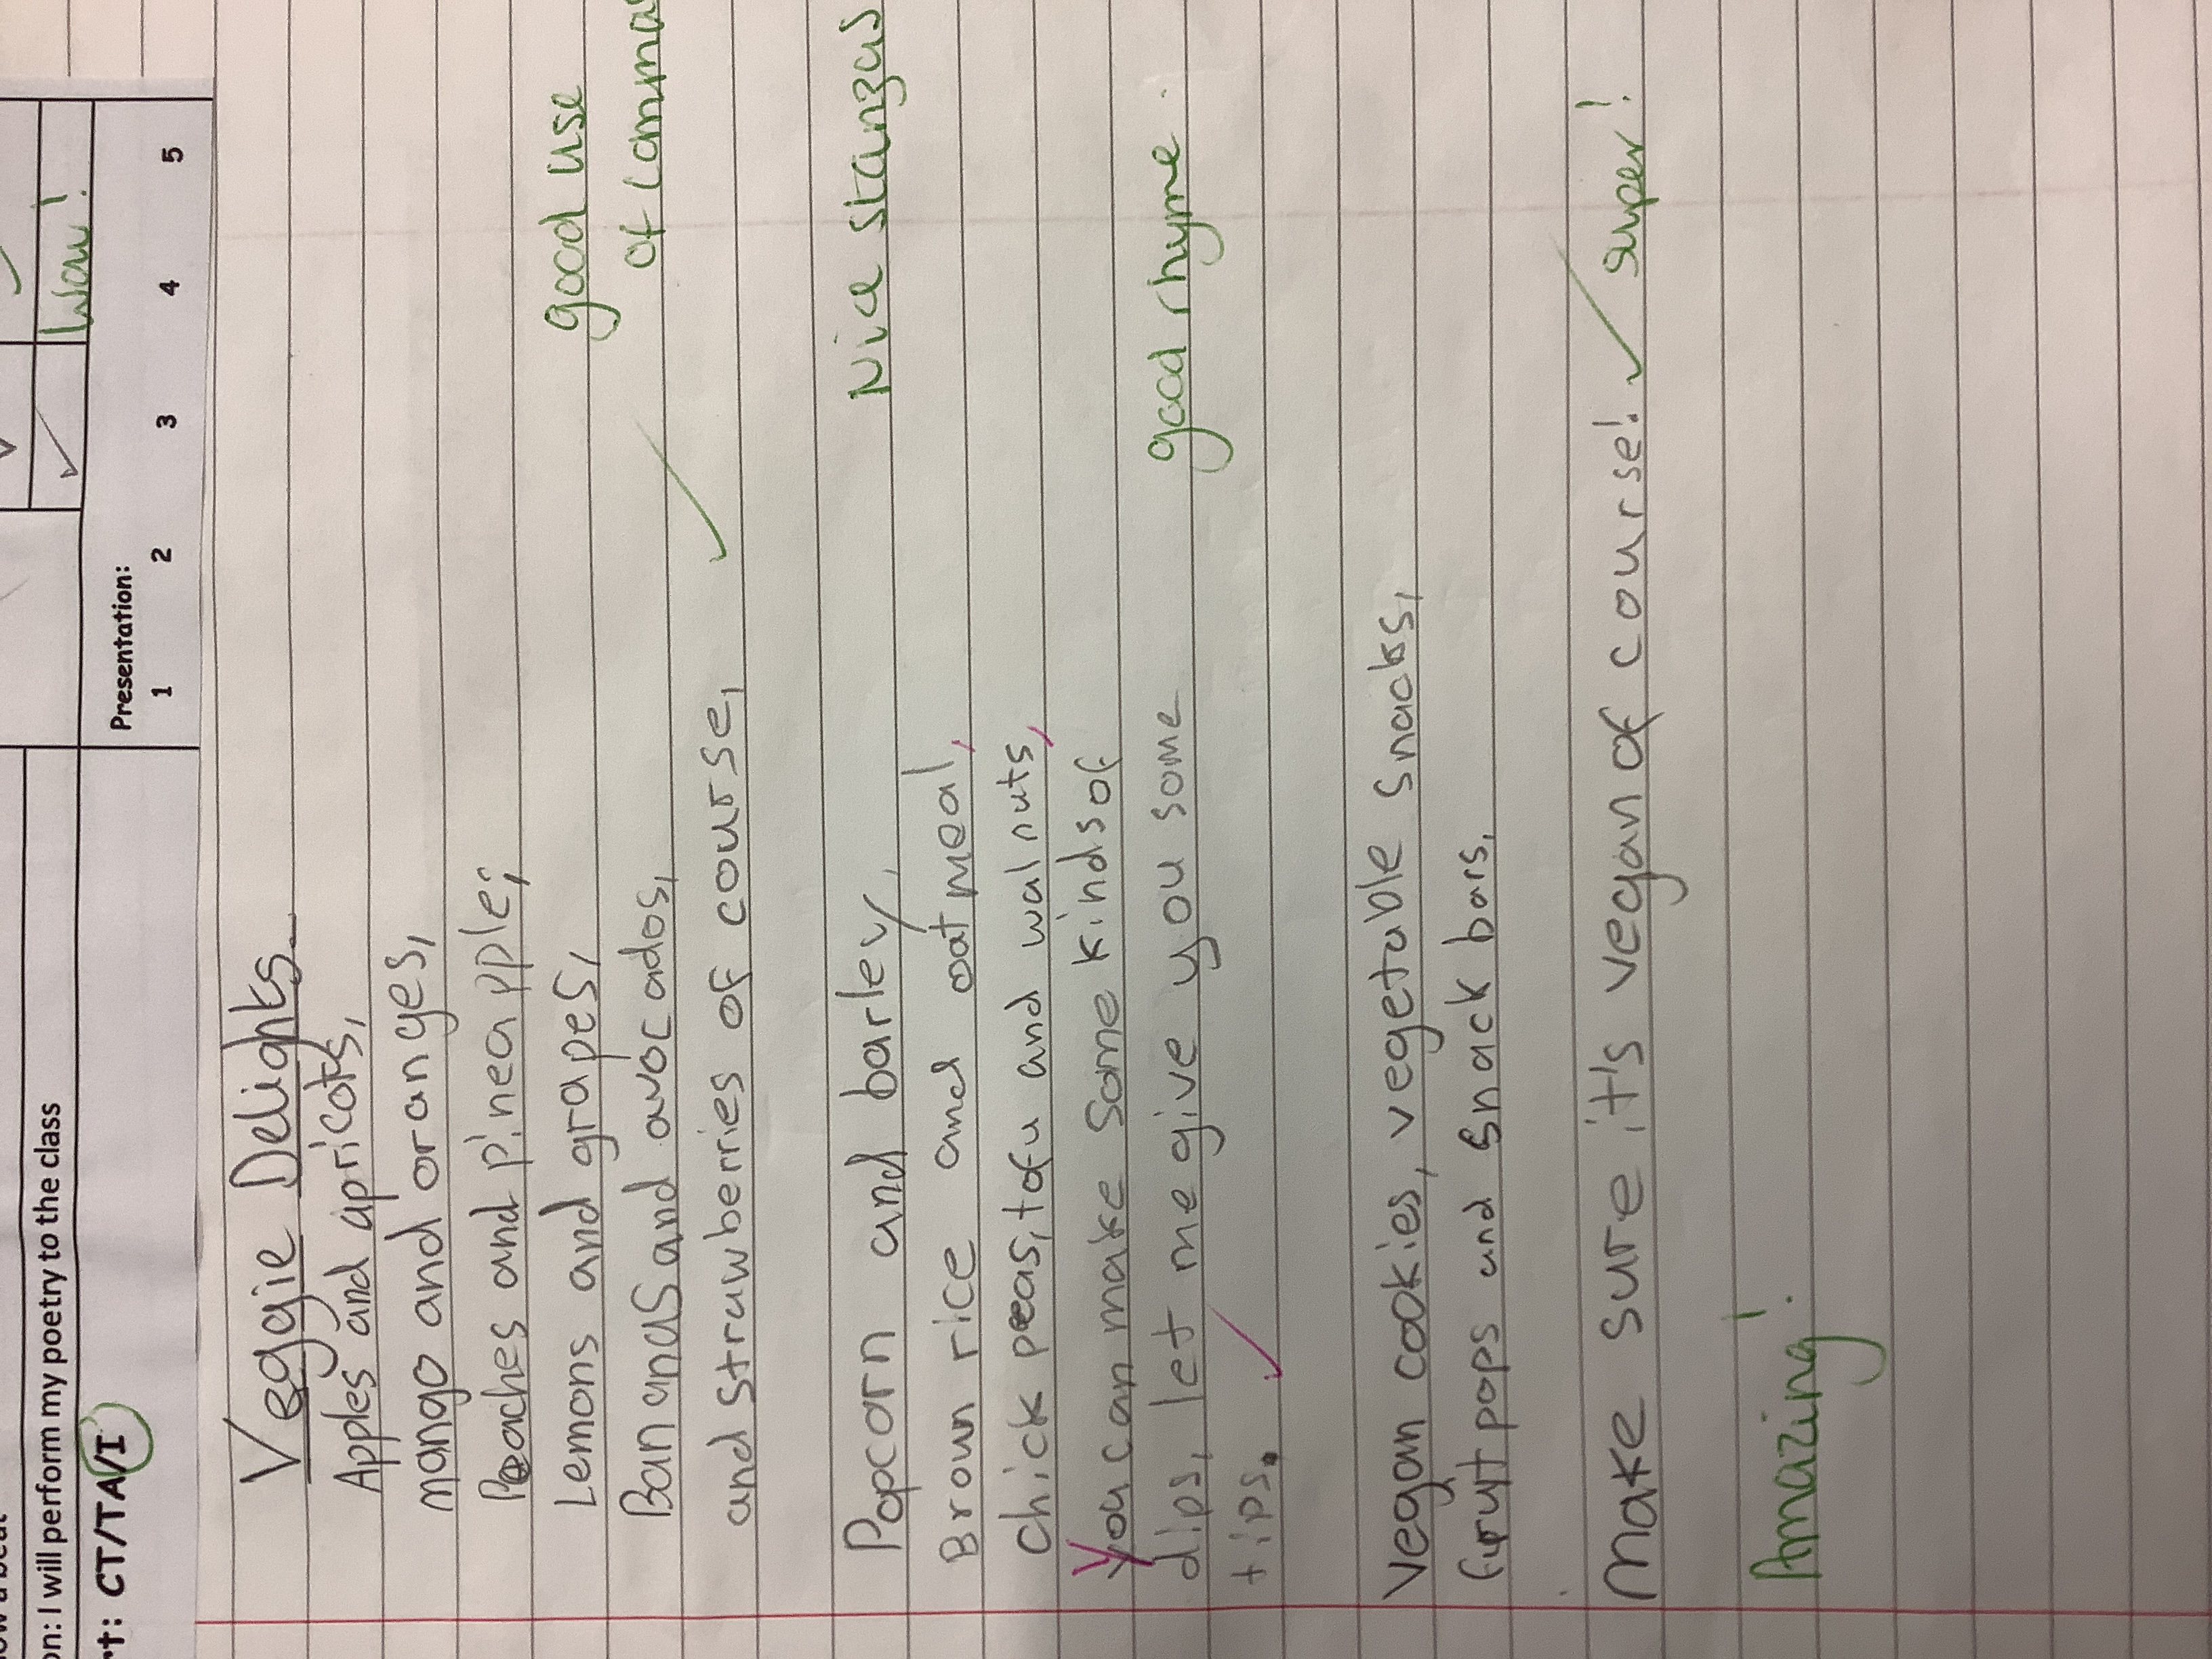 Wow!
on: I will perform my poetry to the class
rt: CT/TA/I
Presentation:
1 2 3 4 5
Veggie Delights.
Apples and apricots,
mango and oranges,
Peaches and pineapple;
Lemons and grapes, good use
Bananas and avocados, of commas
and strawberries of course,
Popcorn and barley, Nice stanzas
Brown rice and oatmeal,
Chick peas, tofu and walnuts,
You can make some kinds of
dips, let me give you some good rhyme.
tips.
Vegan cookies, vegetable snacks,
fruit pops and snack bars.
Make sure it's vegan of course! super!
Amazing!